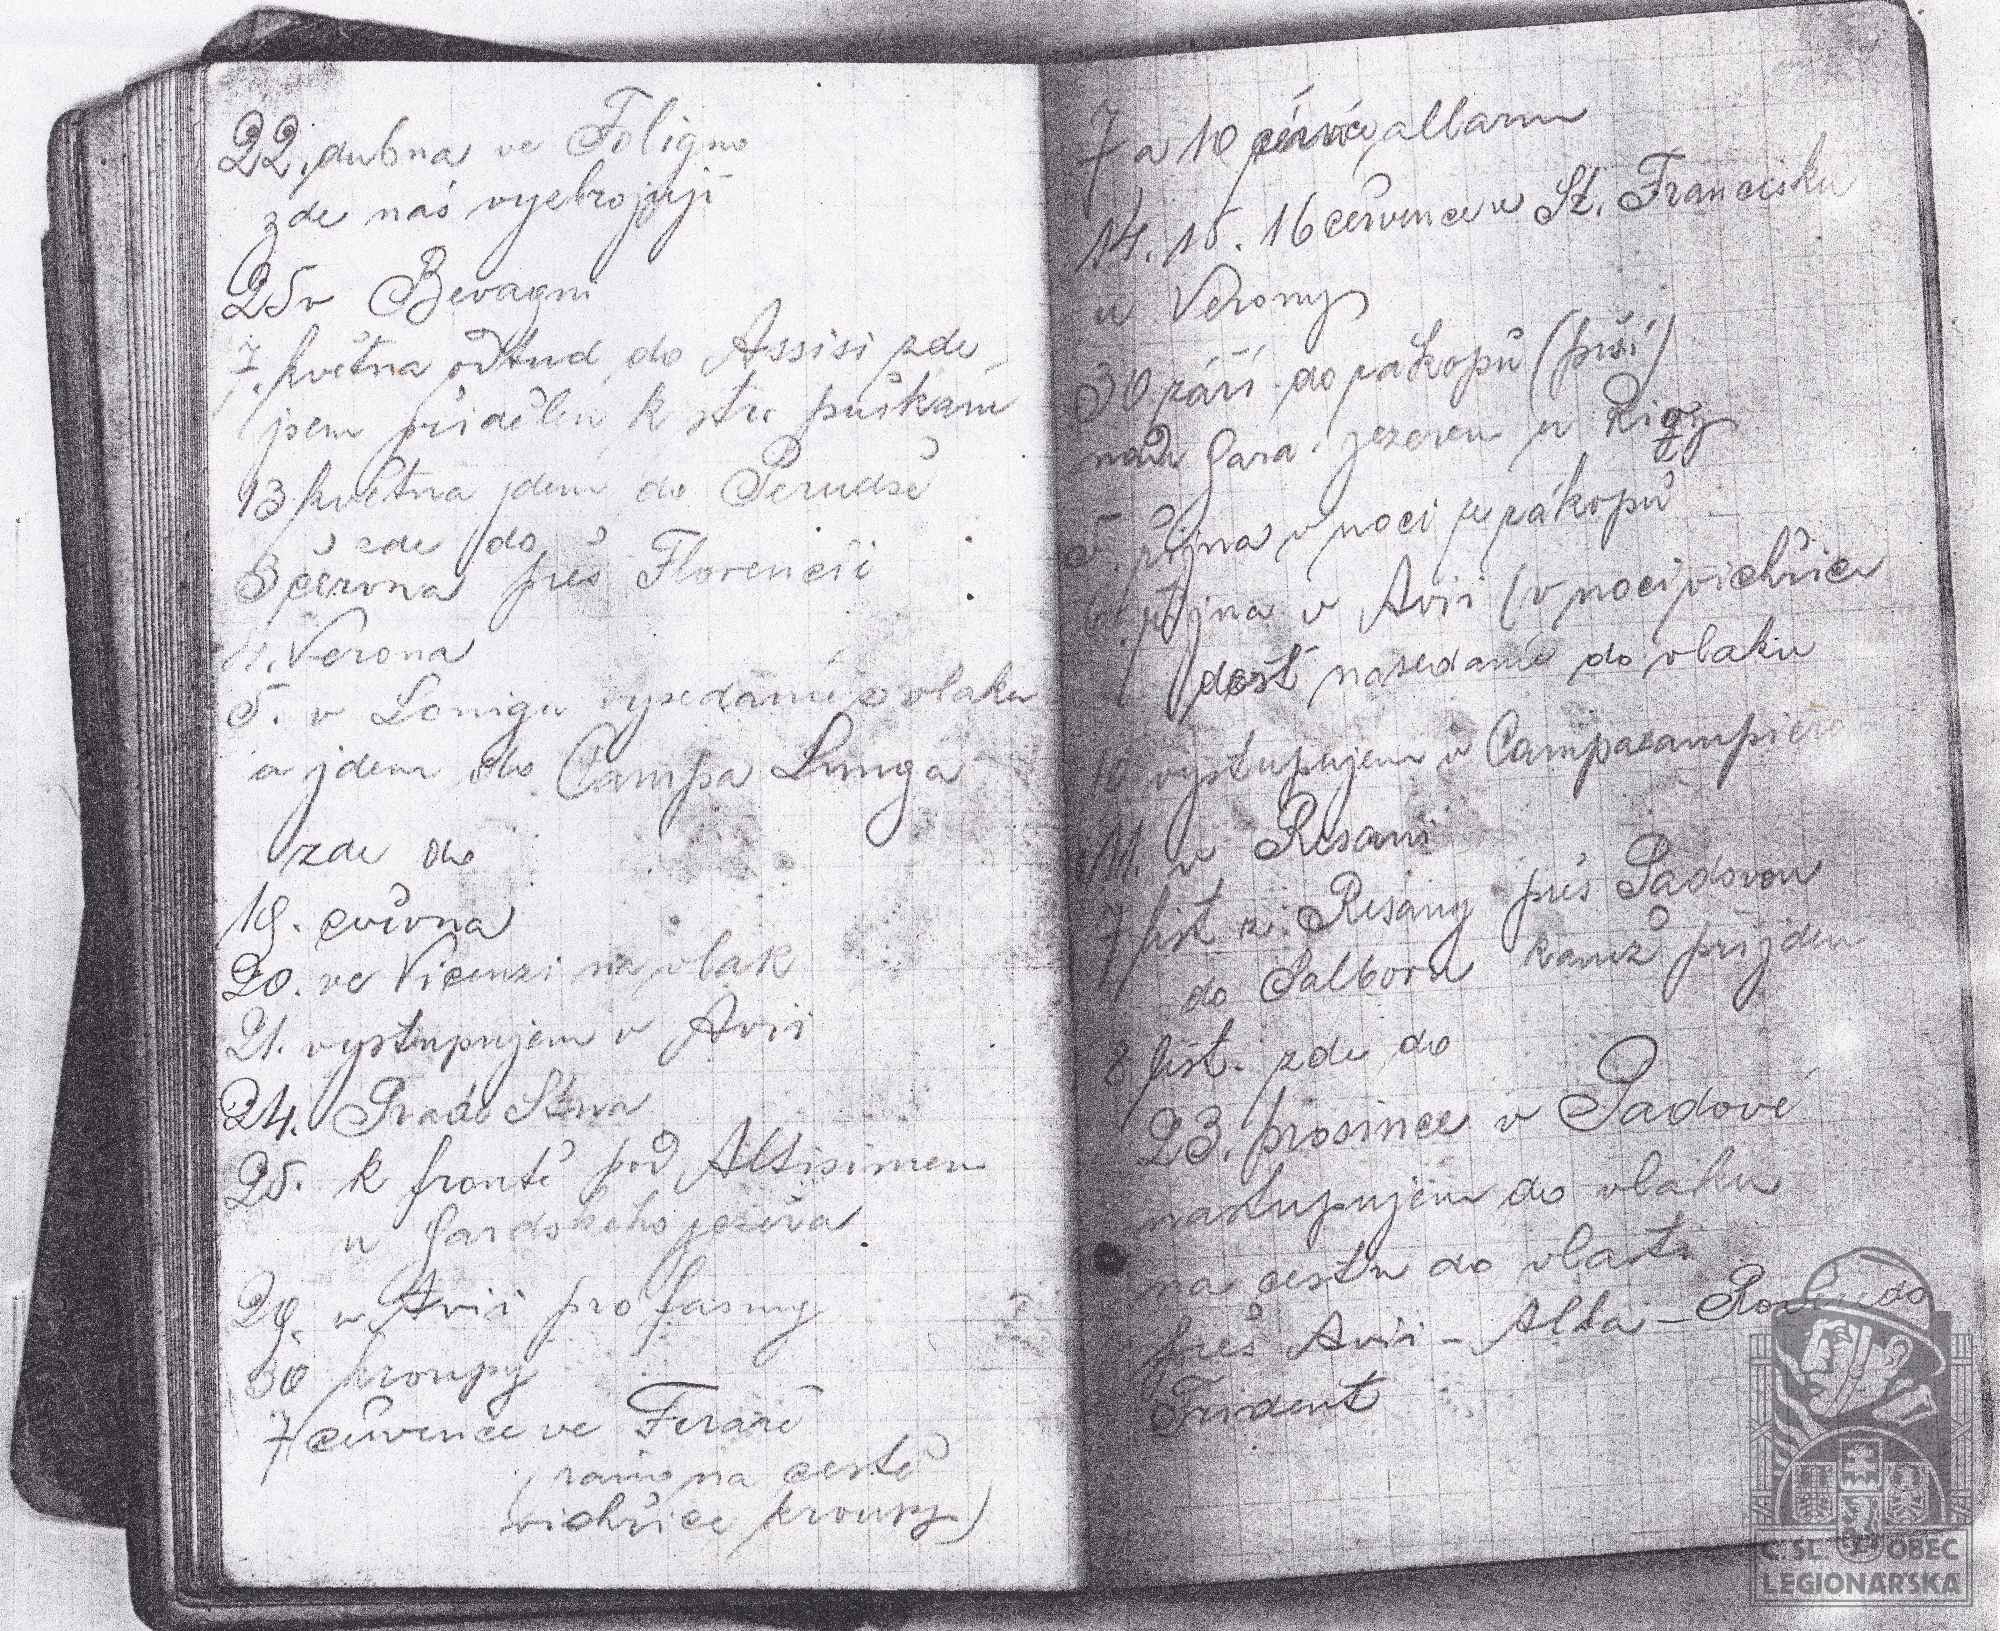 22. dubna ve Foligno
zde nás vyzbrojují
25 v Bevagni
7. května odtud do Assisi zde
jsem přidělen k str. puškám
13 května jdem do Perudše
zde do
3 června přes Florencii
4. Verona
5. v Lonigu vysedání z vlaku
a jdem do Campa Lunga
zde do
19. června
20. ve Vicenzi na vlak
21. vystupujem v Avii
24. Prade Stua
25. k frontě pod Altisimem
u Gardského jezera
29. v Avii pro
30 kroupy
7 července ve Feraře
(ráno na cestě
vichřice kroupy)
7 a 10 allarm
14. 15. 16 července v St. Francisku
u Verony
30 září do zákopů (prší)
nad Gara. jezerem u Rigy
5. října v noci ze zákopů
6. října v Avii (v noci vichřice
dešť nasedáme do vlaku
10 vystupujem v Campacampiero
11. v Resani
7 list z Resany přes Padovou
do Salboru kamž přijdem
8 list. zde do
23. prosince v Padově
nastupujem do vlaku
na cestu do vlasti
přes Avii - Alta -
Trident
Č. SL. OBEC
LEGIONÁŘSKÁ